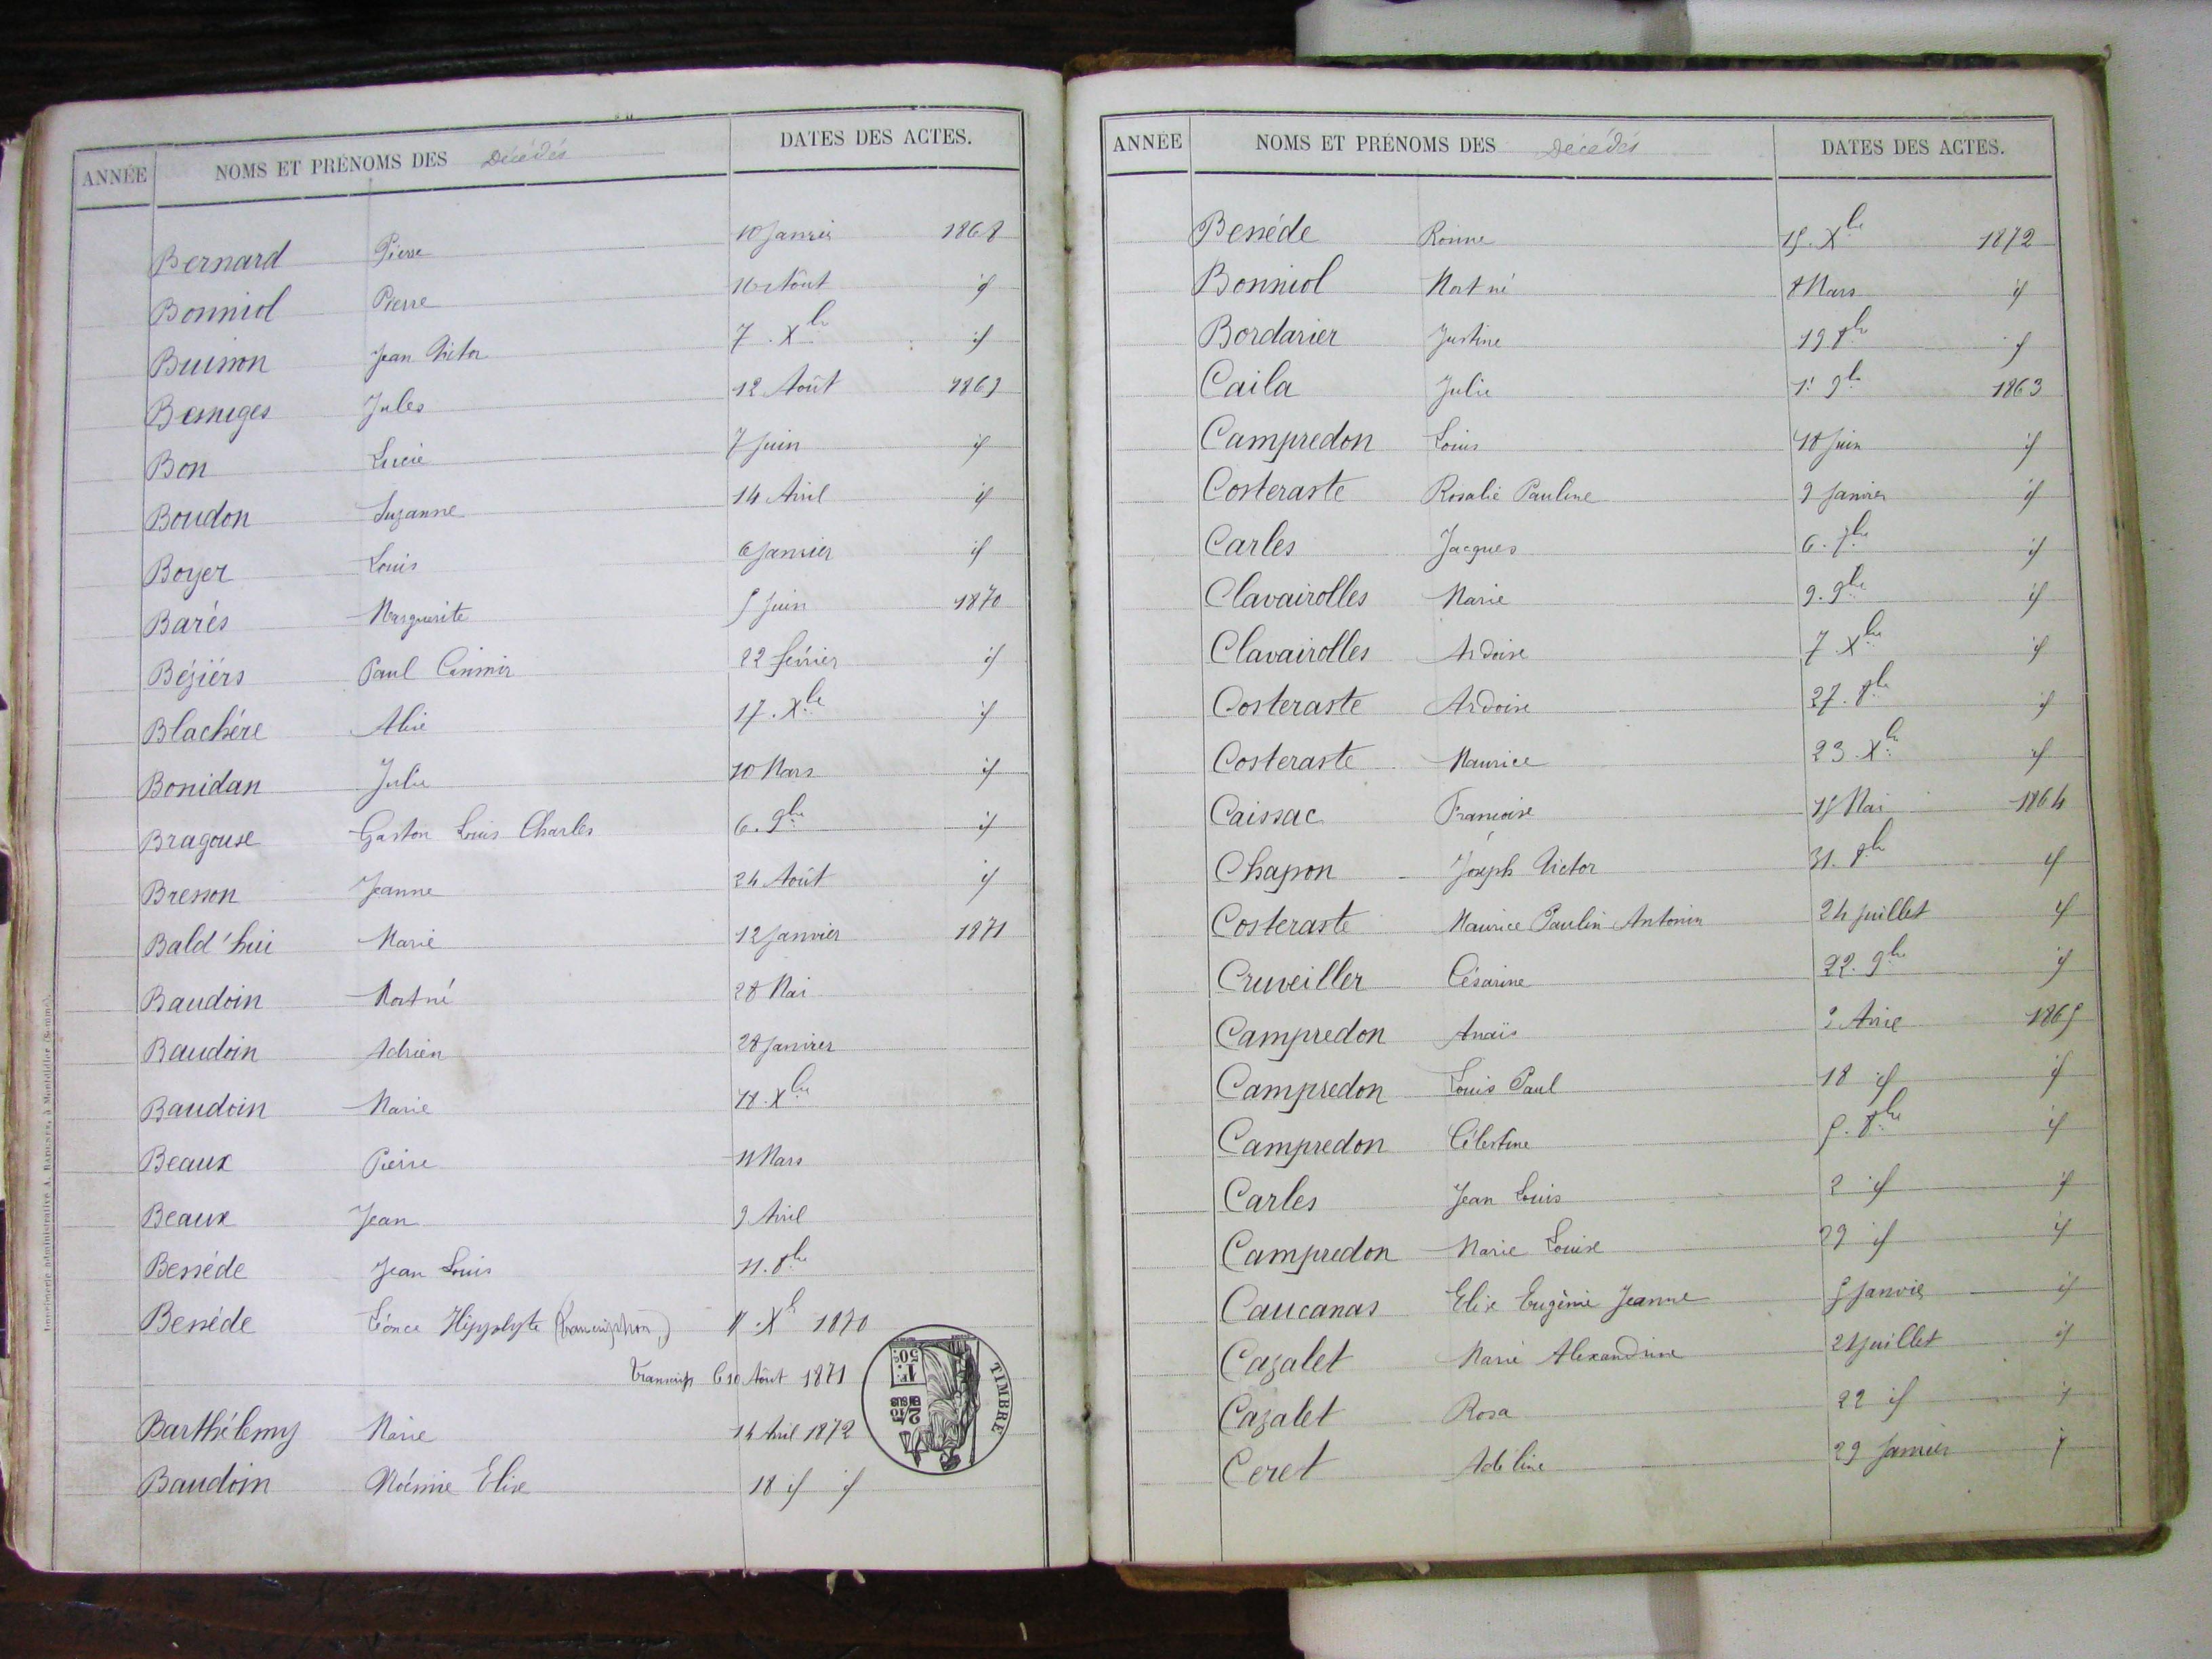 ANNÉE NOMS ET PRÉNOMS DES Décédés DATES DES ACTES.
Bernard Pierre 10 Janvier 1868
Bonniol Pierre 16 Août id
Buisson Jean Victor 7. Xbre id
Besseges Jules 12 Août 1869
Bon Lucie 7 Juin id
Boudon Suzanne 14 Avril id
Boyer Louis 6 Janvier id
Barés Marguerite 5 Juin 1870
Béziérs Paul Casimir 22 février id
Blachére Alix 17. Xbre id
Bonidan Julie 10 Mars id
Bragouse Gaston Louis Charles 6. 9bre id
Bresson Jeanne 24 Août id
Bald'hui Marie 12 Janvier 1871
Baudoin Mort né 28 Mai
Baudoin Adrien 28 Janvier
Baudoin Marie 18. Xbre
Beaux Pierre 11 Mars
Beaux Jean 9 Avril
Bessède Jean Louis 11. 8bre
Bessède Léonce Hippolyte (transcription) Xbre 1870
10 Août 1871
Barthélemy Marie 14 Avril 1872
Baudoin Noémie Elise 18 id id
TIMBRE
1F. 50c.
2/10 EN SUS
Imprimerie administrative A. à Montdidier (Somme).
ANNÉE NOMS ET PRÉNOMS DES Décédés DATES DES ACTES.
Bessède 15. Xbre 1872
Bonniol Mort né 8 Mars id
Bordarier Justine 19. 8bre id
Caila Julie 1er 9bre 1863
Campredon Louis 18 Juin id
Costeraste Rosalie Pauline 9 Janvier id
Carles Jacques 6. 7bre id
Clavairolles Marie 9. 9bre id
Clavairolles Ardoise 7 Xbre id
Costeraste Ardoise 27. 8bre id
Costeraste Maurice 23. Xbre id
Caissac Françoise 15 Mai 1864
Chapon Joseph Victor 31. 8bre id
Costeraste Maurice Paulin Antonin 24 Juillet id
Cruveiller Césarine 22. 9bre id
Campredon Anaïs 2 Avril 1865
Campredon Louis Paul 18 id id
Campredon Célestine 5. 8bre id
Carles Jean Louis 2 id id
Campredon Marie Louise 29 id id
Caucanas Elise Eugènie Jeanne 5 Janvier id
Cazalet Marie Alexandrine 21 Juillet id
Cazalet Rosa 22 id id
Ceret Adéline 29 Janvier id